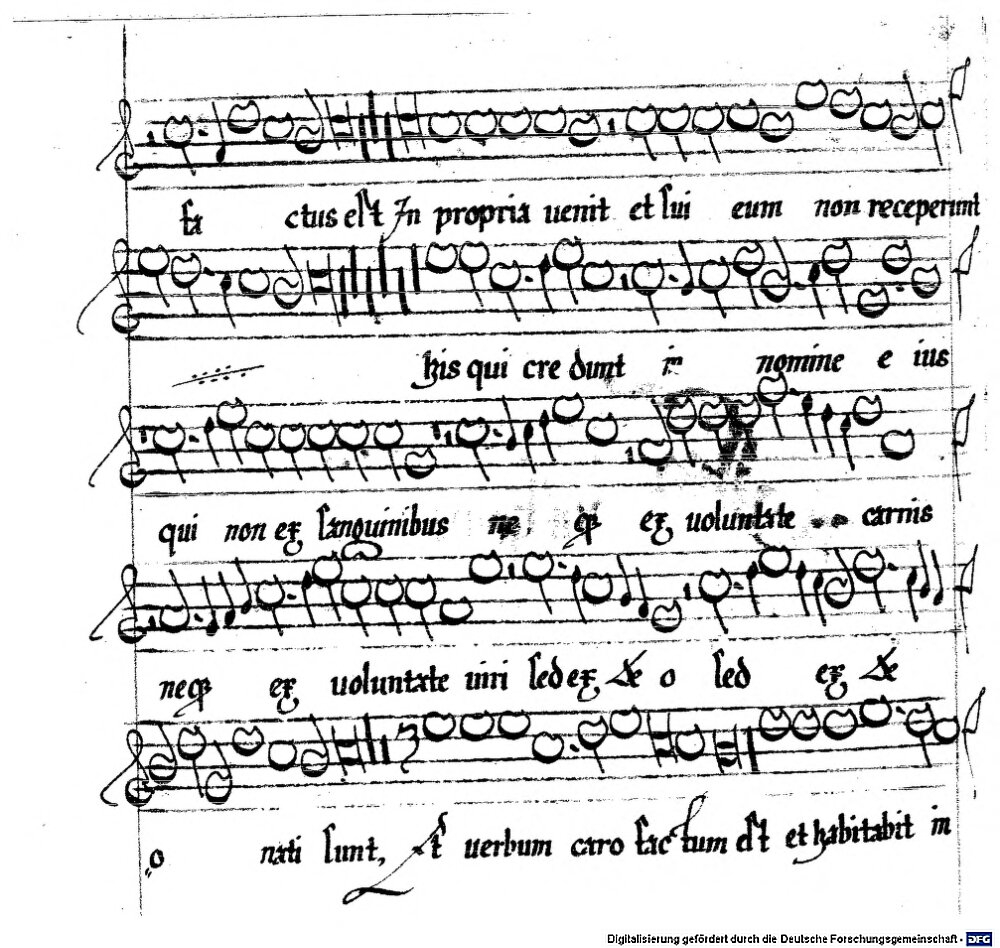 fa ctus est In propria uenit et sui eum non receperunt
his qui credunt in nomine e ius
qui non ex sanguinibus neq ex uoluntate carnis
neq ex uoluntate uiri sed ex de o sed ex de
o nati sunt, Et uerbum caro factum est et habitabit in
Digitalisierung gefördert durch die Deutsche Forschungsgemeinschaft - DFG